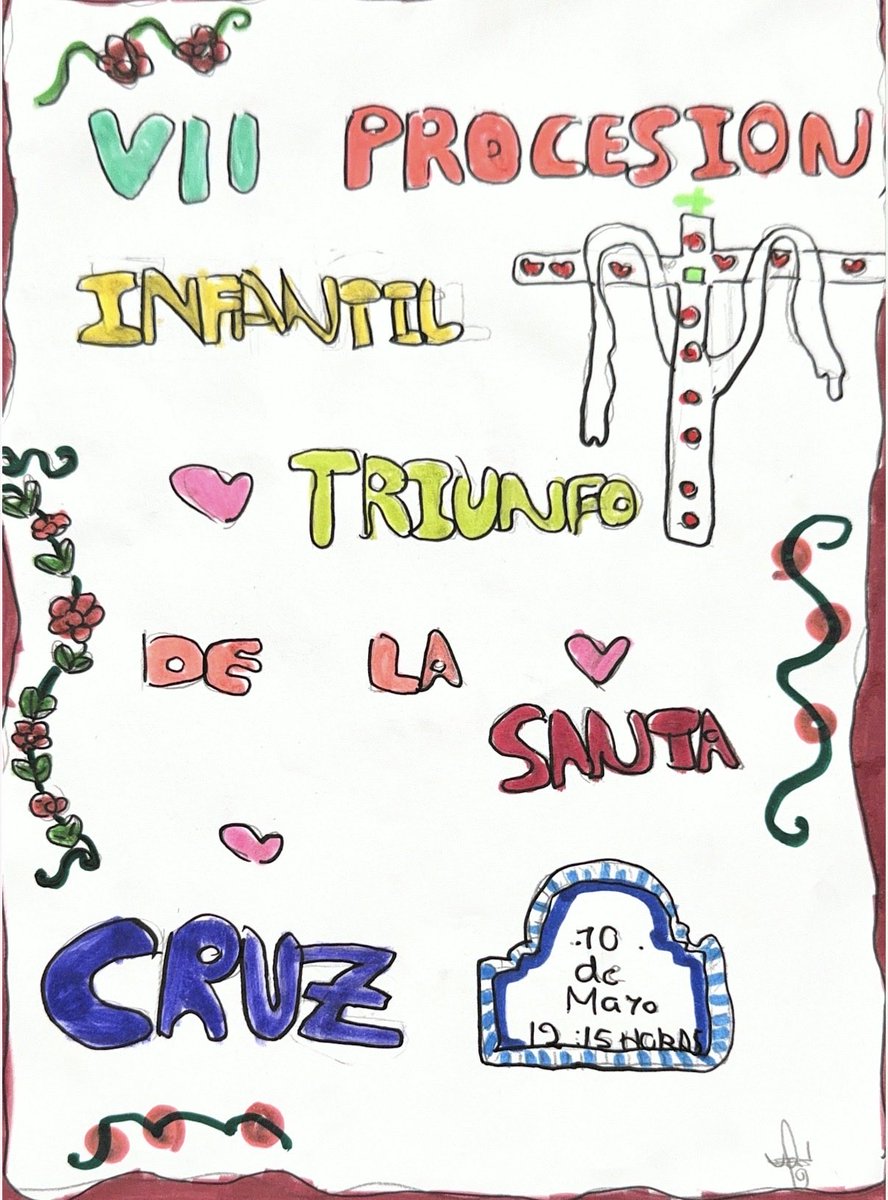 VII PROCESION
INFANTIL
TRIUNFO
DE LA
SANTA
CRUZ
10
de
Mayo
12:15 HORAS